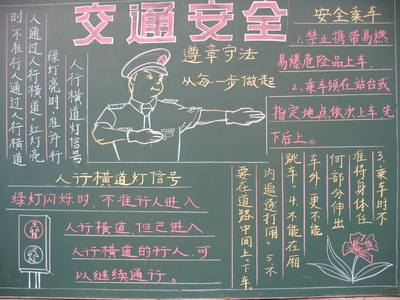 交通安全
遵章守法
从每一步做起
人行横道灯信号
绿灯亮时,准许行
人通过人行横道.红灯亮
时不准行人通过人行横道
人行横道灯信号
绿灯闪烁时,不准行人进入
人行横道,但已进入
人行横道的行人,可
以继续通行。
安全乘车
1.禁止携带易燃
易爆危险品上车.
2.乘车须在站台或
指定地点依次上车先
下后上。
3.乘车时不
准将身体任
何部分伸出
车外,更不能
跳车.4.不能在厢
内追逐打闹.5.不
要在道路中间上.下车.